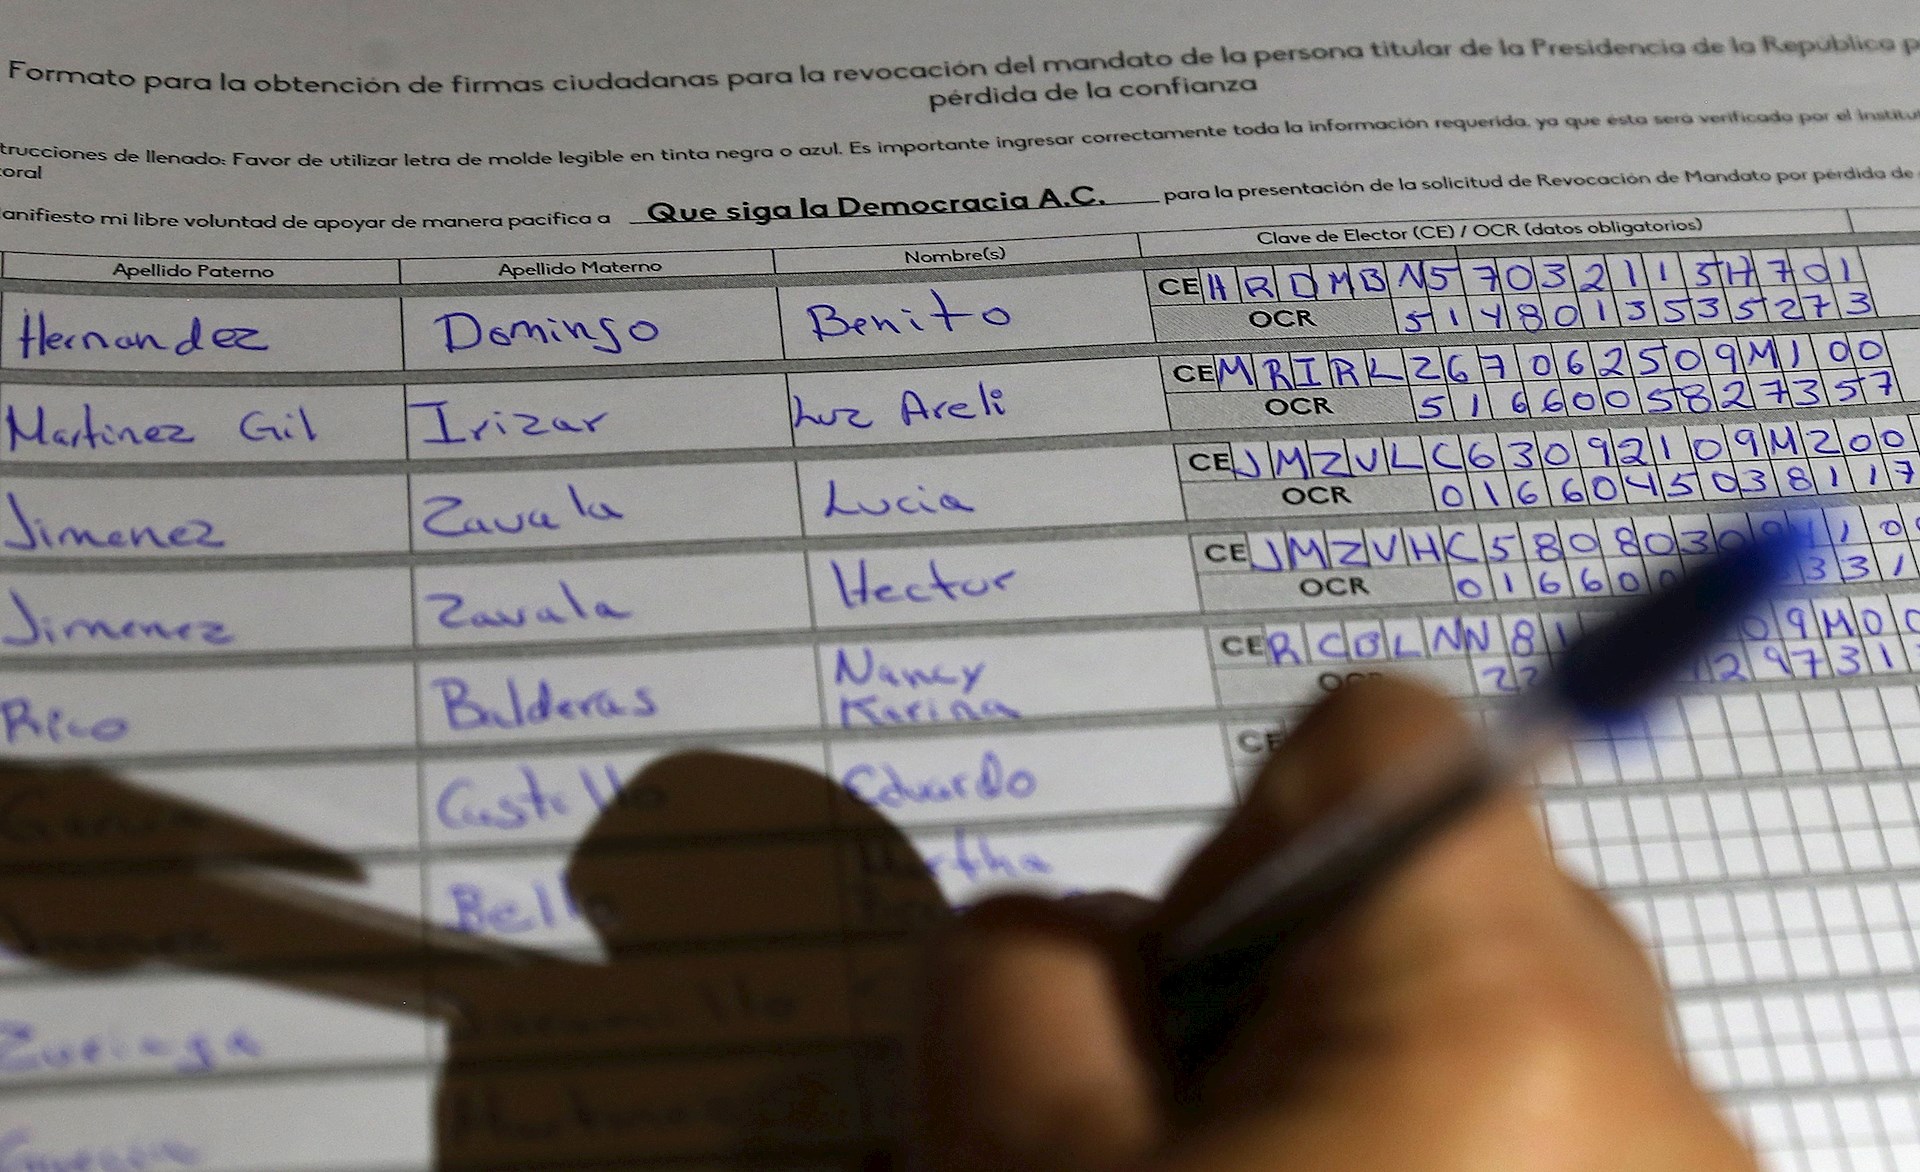 Formato para la obtención de firmas ciudadanas para la revocación del mandato de la persona titular de la Presidencia de la República p
pérdida de la confianza
trucciones de llenado: Favor de utilizar letra de molde legible en tinta negra o azul. Es importante ingresar correctamente toda la información requerida, ya que ésta será verificada por el Institut
oral
anifiesto mi libre voluntad de apoyar de manera pacífica a Que siga la Democracia A.C. para la presentación de la solicitud de Revocación de Mandato por pérdida de
Apellido Paterno Apellido Materno Nombre(s) Clave de Elector (CE) / OCR (datos obligatorios)
Hernandez Domingo Benito CE HRDMBN57032113H701
OCR 5148013535273
Martinez Gil Irizar Luz Areli CE MRIRLZ67062509M100
OCR 5166005827357
Jimenez Zavala Lucia CE JMZVLC63092109M200
OCR 0166045038117
Jimenez Zavala Hector CE JMZVHC580803
OCR 01660 331
Rico Balderas Nancy Karina CE RCBLNN81 09M0
22 29731
Castillo Eduardo CE
Bell
Zuniga